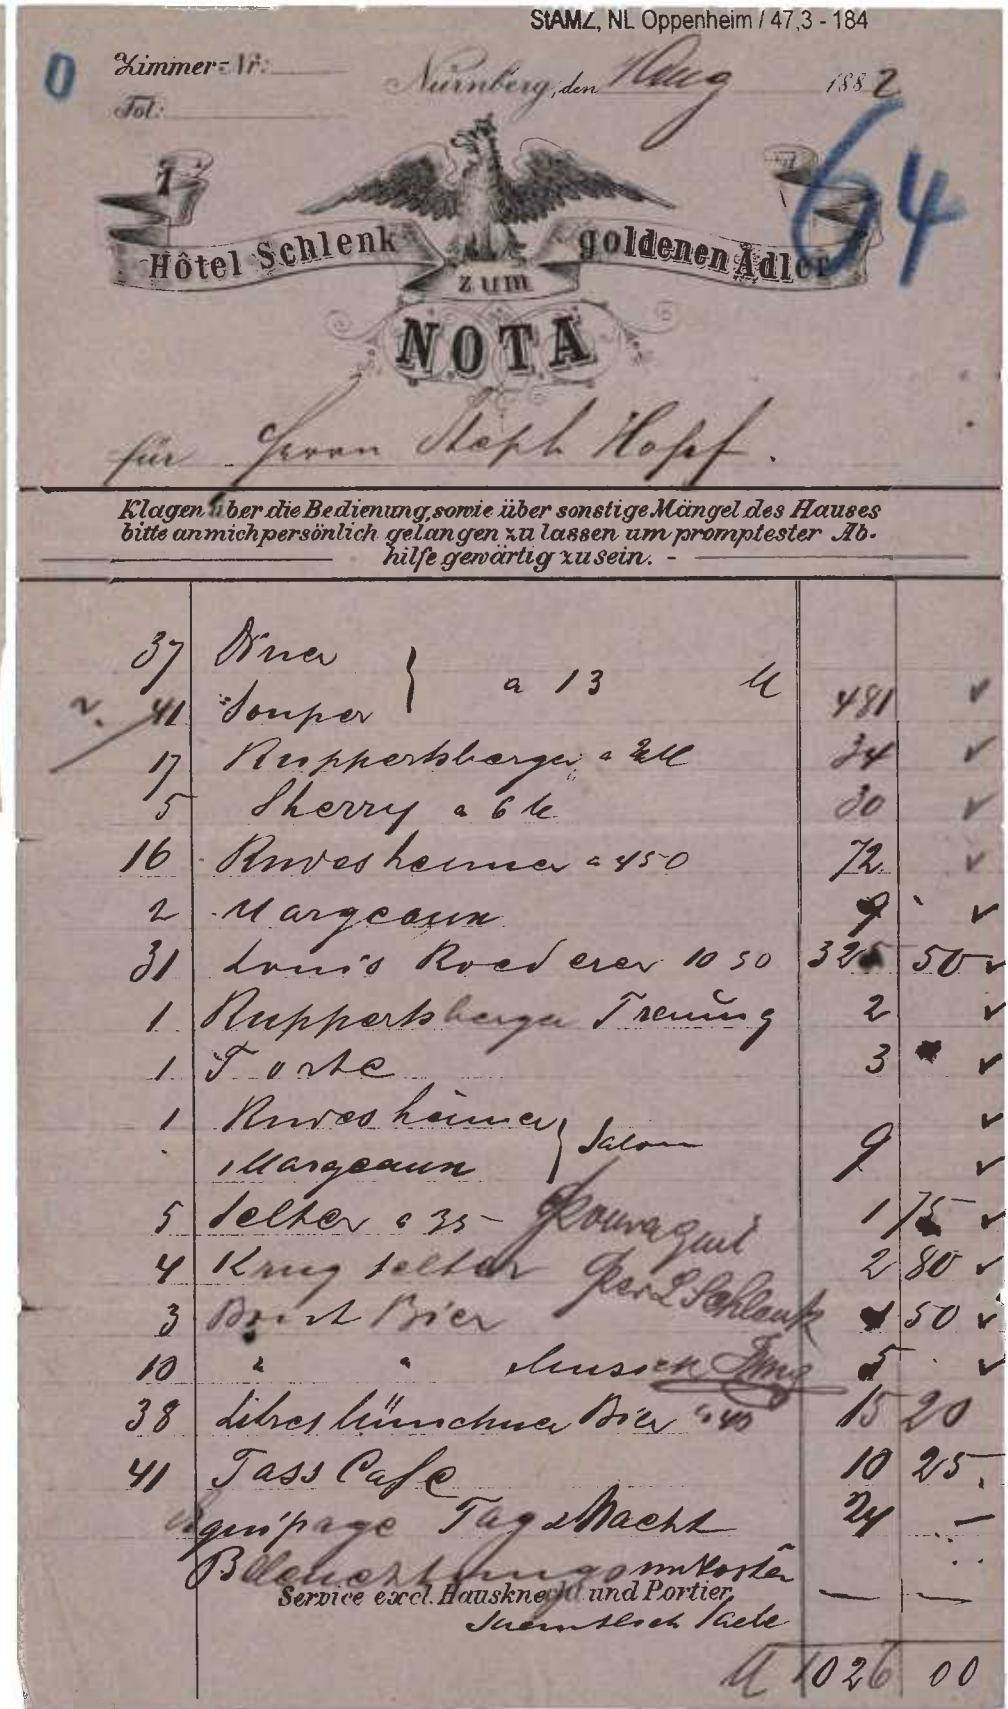 StAMZ, NL Oppenheim / 47,3 - 184
0
Zimmer-Nr:
Fol:
Nürnberg, den 1 Aug 1882
64
Hôtel Schlenk zum goldenen Adler
NOTA
für Herrn Steph Hopf.
Klagen über die Bedienung, sowie über sonstige Mängel des Hauses
bitte an mich persönlich gelangen zu lassen um promptester Ab-
hilfe gewärtig zu sein. -
37 Diner
41 Souper } a 13 M 481 ✓
17 Ruppertsberger a 2 M 34 ✓
5 Sherry a 6 M 30 ✓
16 Rudesheimer a 450 72 ✓
2 Margeaux 9 ✓
31 Louis Roederer 10 50 325 50 ✓
1 Ruppertsberger 2 ✓
1 Torte 3 ✓
1 Rudesheimer ✓
1 Margeaux } Salon 9 ✓
5 Selter a 35 - 1 75 ✓
4 Krug Selter 2 80 ✓
3 Bier 1 50 ✓
per L Schlenk
10 " " 5 ✓
38 Litres Münchner Bier a 40 15 20
41 Tass Cafe 10 25
Equipage Tag & Nacht 24 —
Beleuchtungsunkosten
Service excl. Hausknecht und Portier — —
M 1026 00